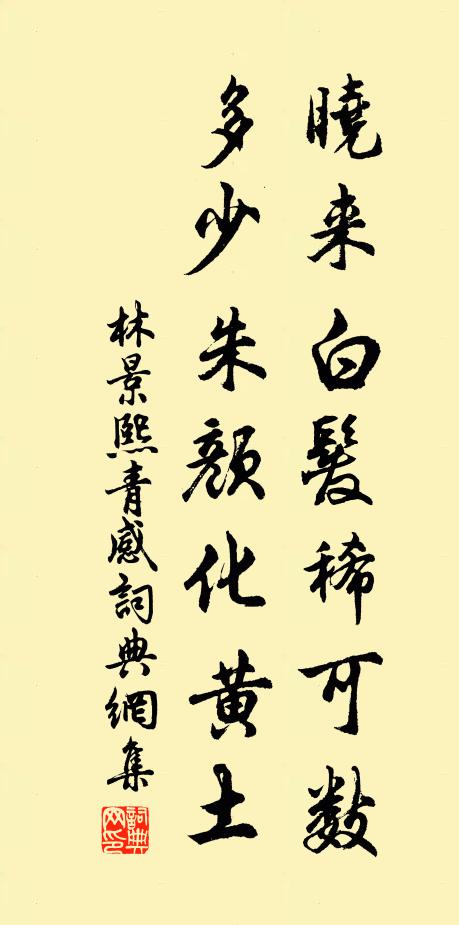 曉来白髮稀可数
多少朱顔化黄土
林景熙青感詞典網集
詞典网印